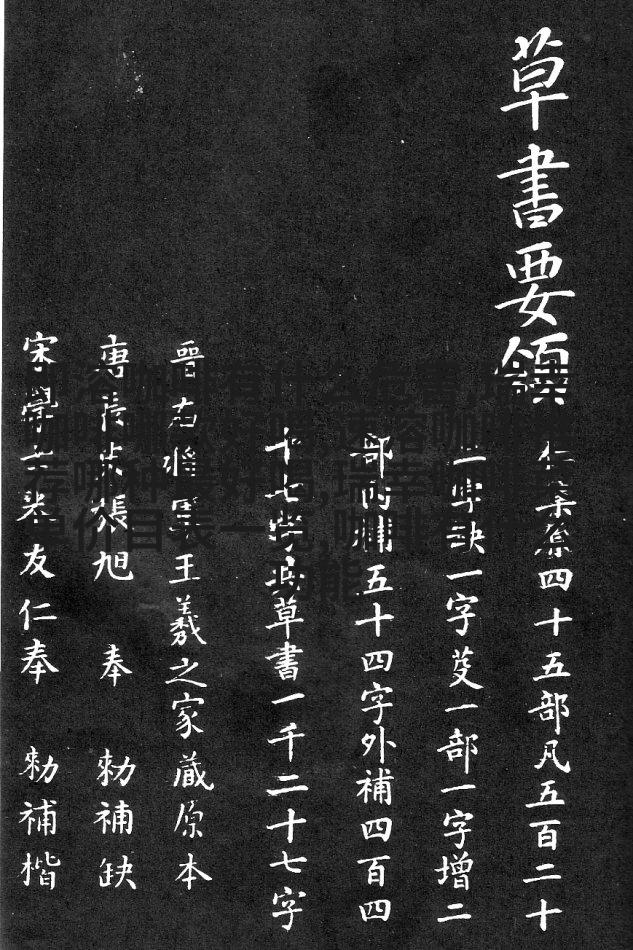 草書要領
四十五部凡五百二十
缺一字芟一部一字增二
部內補五十四字外補四百四
十七字草書一千二十七字
晉右將軍王羲之家藏原本
唐長史張旭 奉 勑補缺
宋學士米友仁奉 勑補楷
溶咖啡有什么危害
咖啡哪款好喝,速溶咖啡推
荐哪种最好喝,瑞幸咖啡
单价目表一览,咖啡
功能